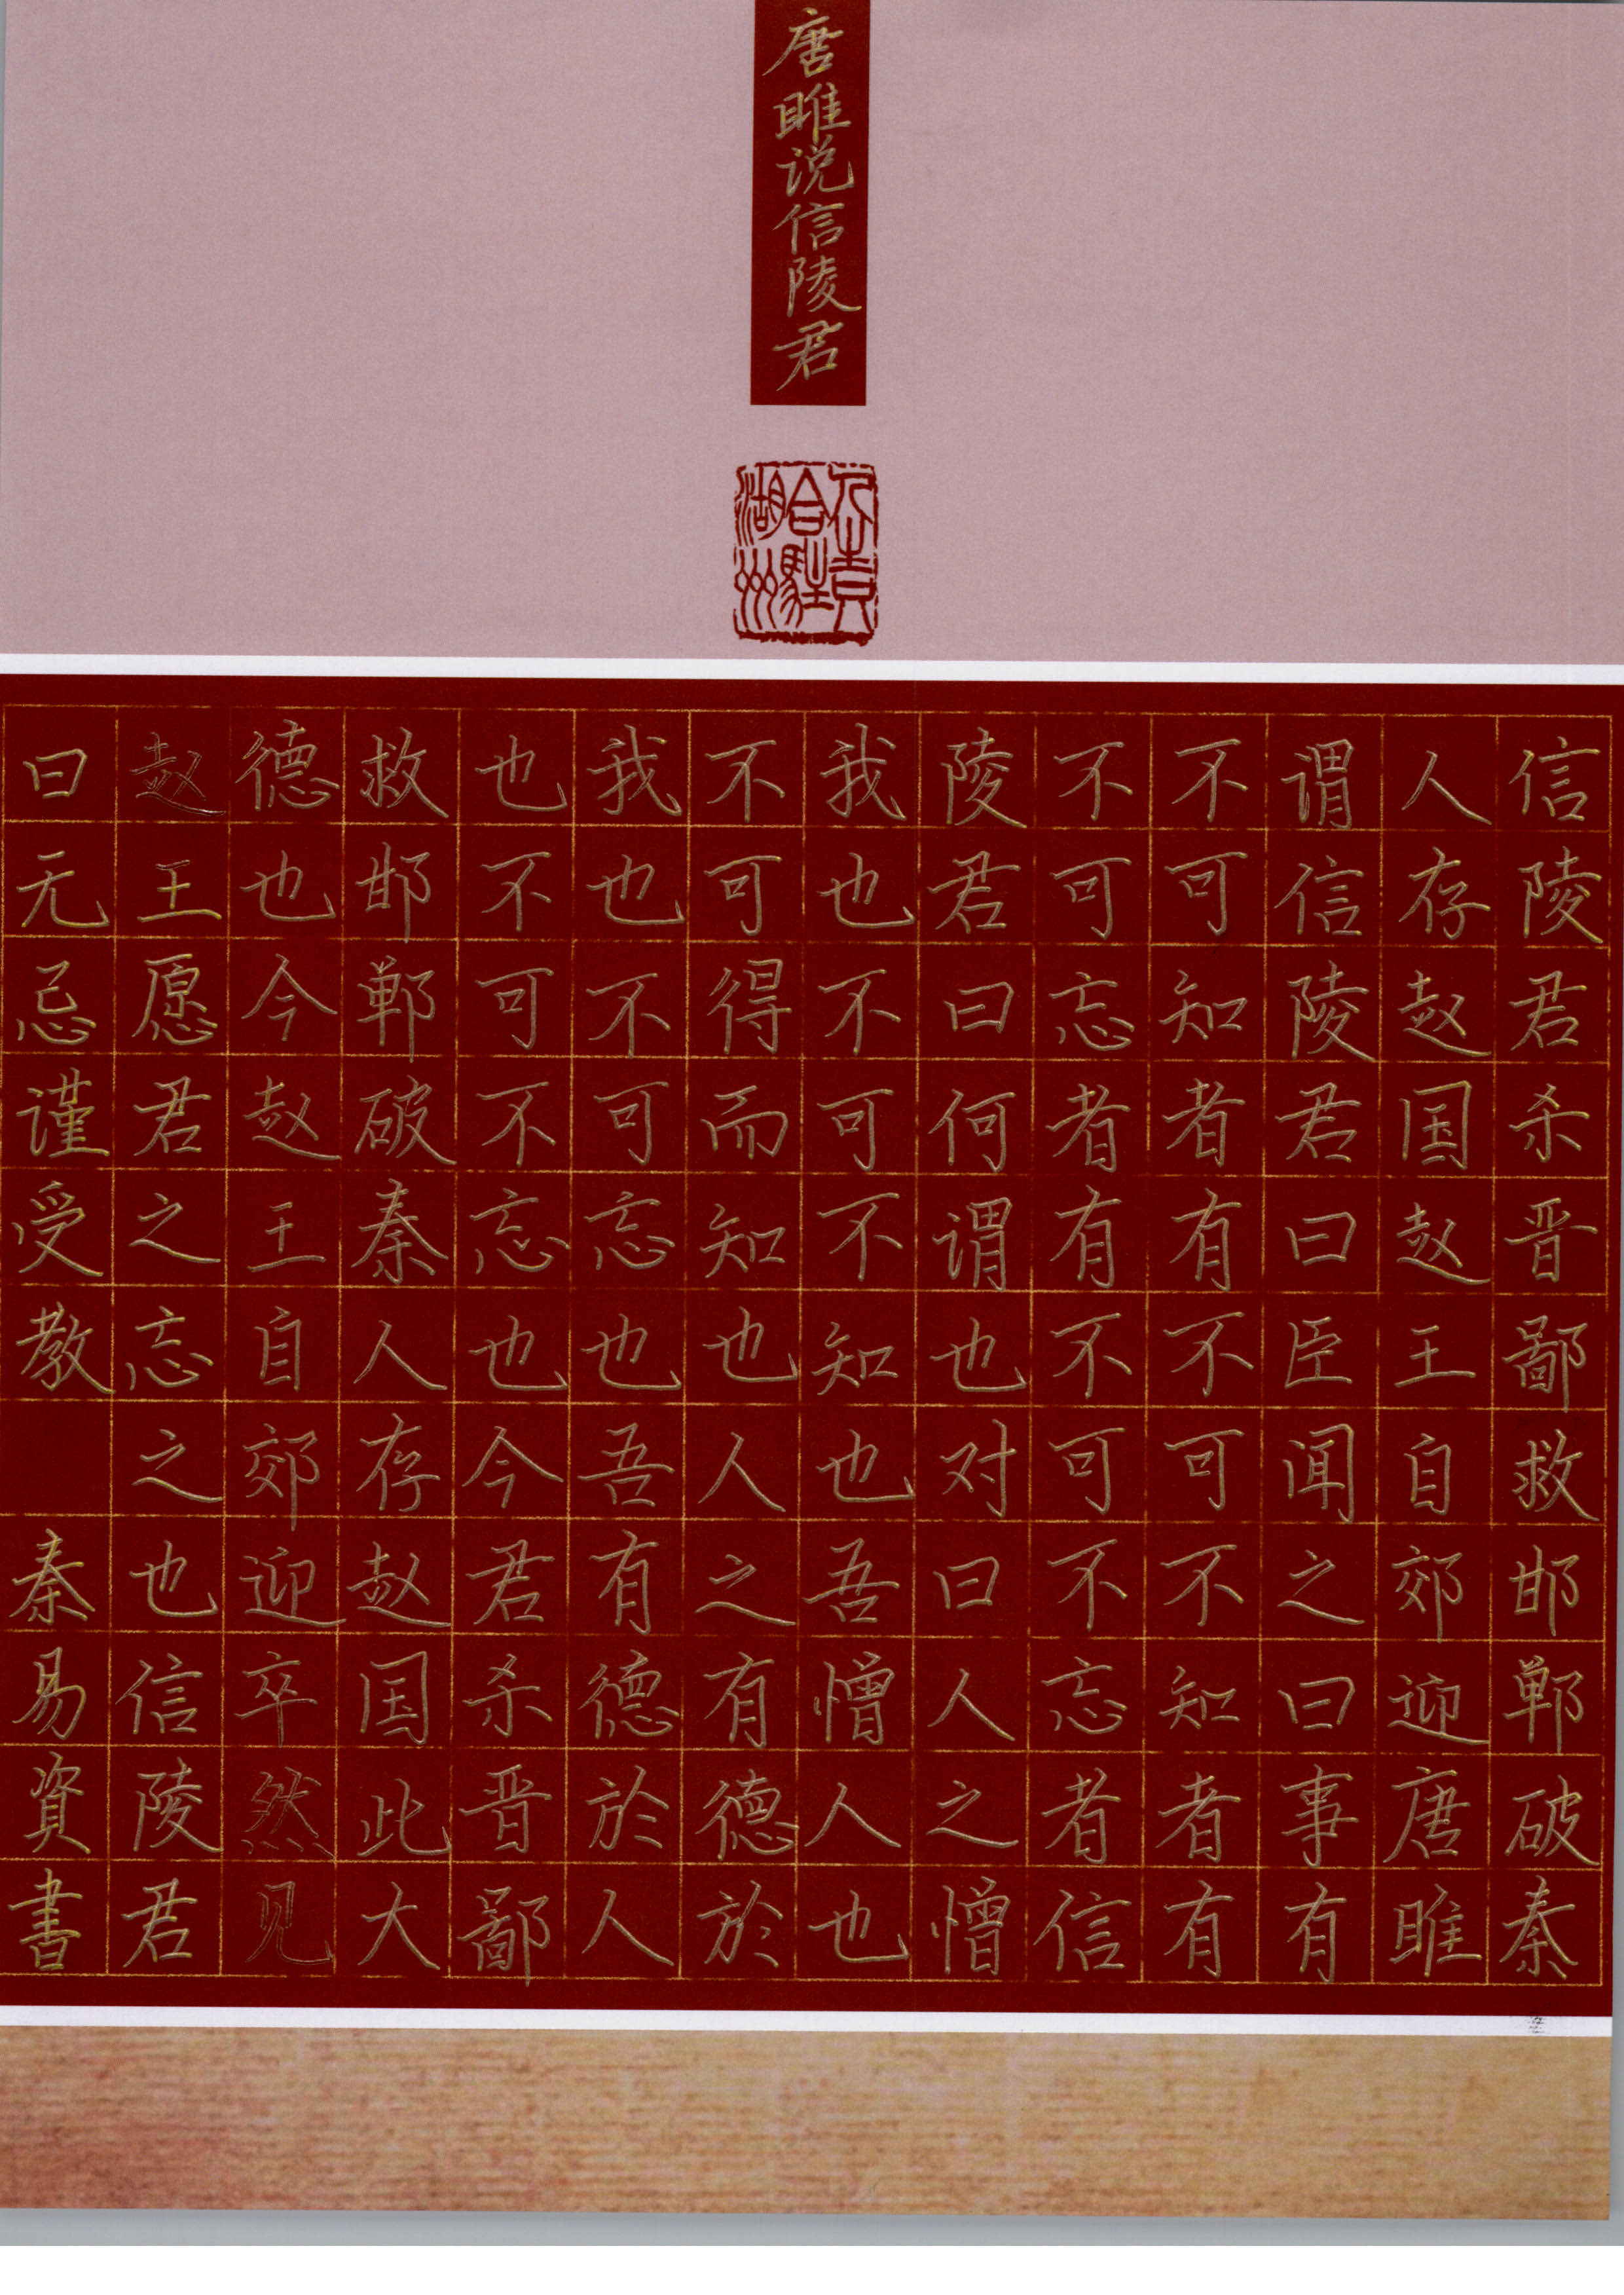 唐雎说信陵君
信陵君杀晋鄙救邯郸破秦
人存赵国赵王自郊迎唐雎
谓信陵君曰臣闻之曰事有
不可知者有不可不知者有
不可忘者有不可不忘者信
陵君曰何谓也对曰人之憎
我也不可不知也吾憎人也
不可得而知也人之有德於
我也不可忘也吾有德於人
也不可不忘也今君杀晋鄙
救邯郸破秦人存赵国此大
德也今赵王自郊迎卒然见
赵王愿君之忘之也信陵君
曰无忌谨受教 秦易資書